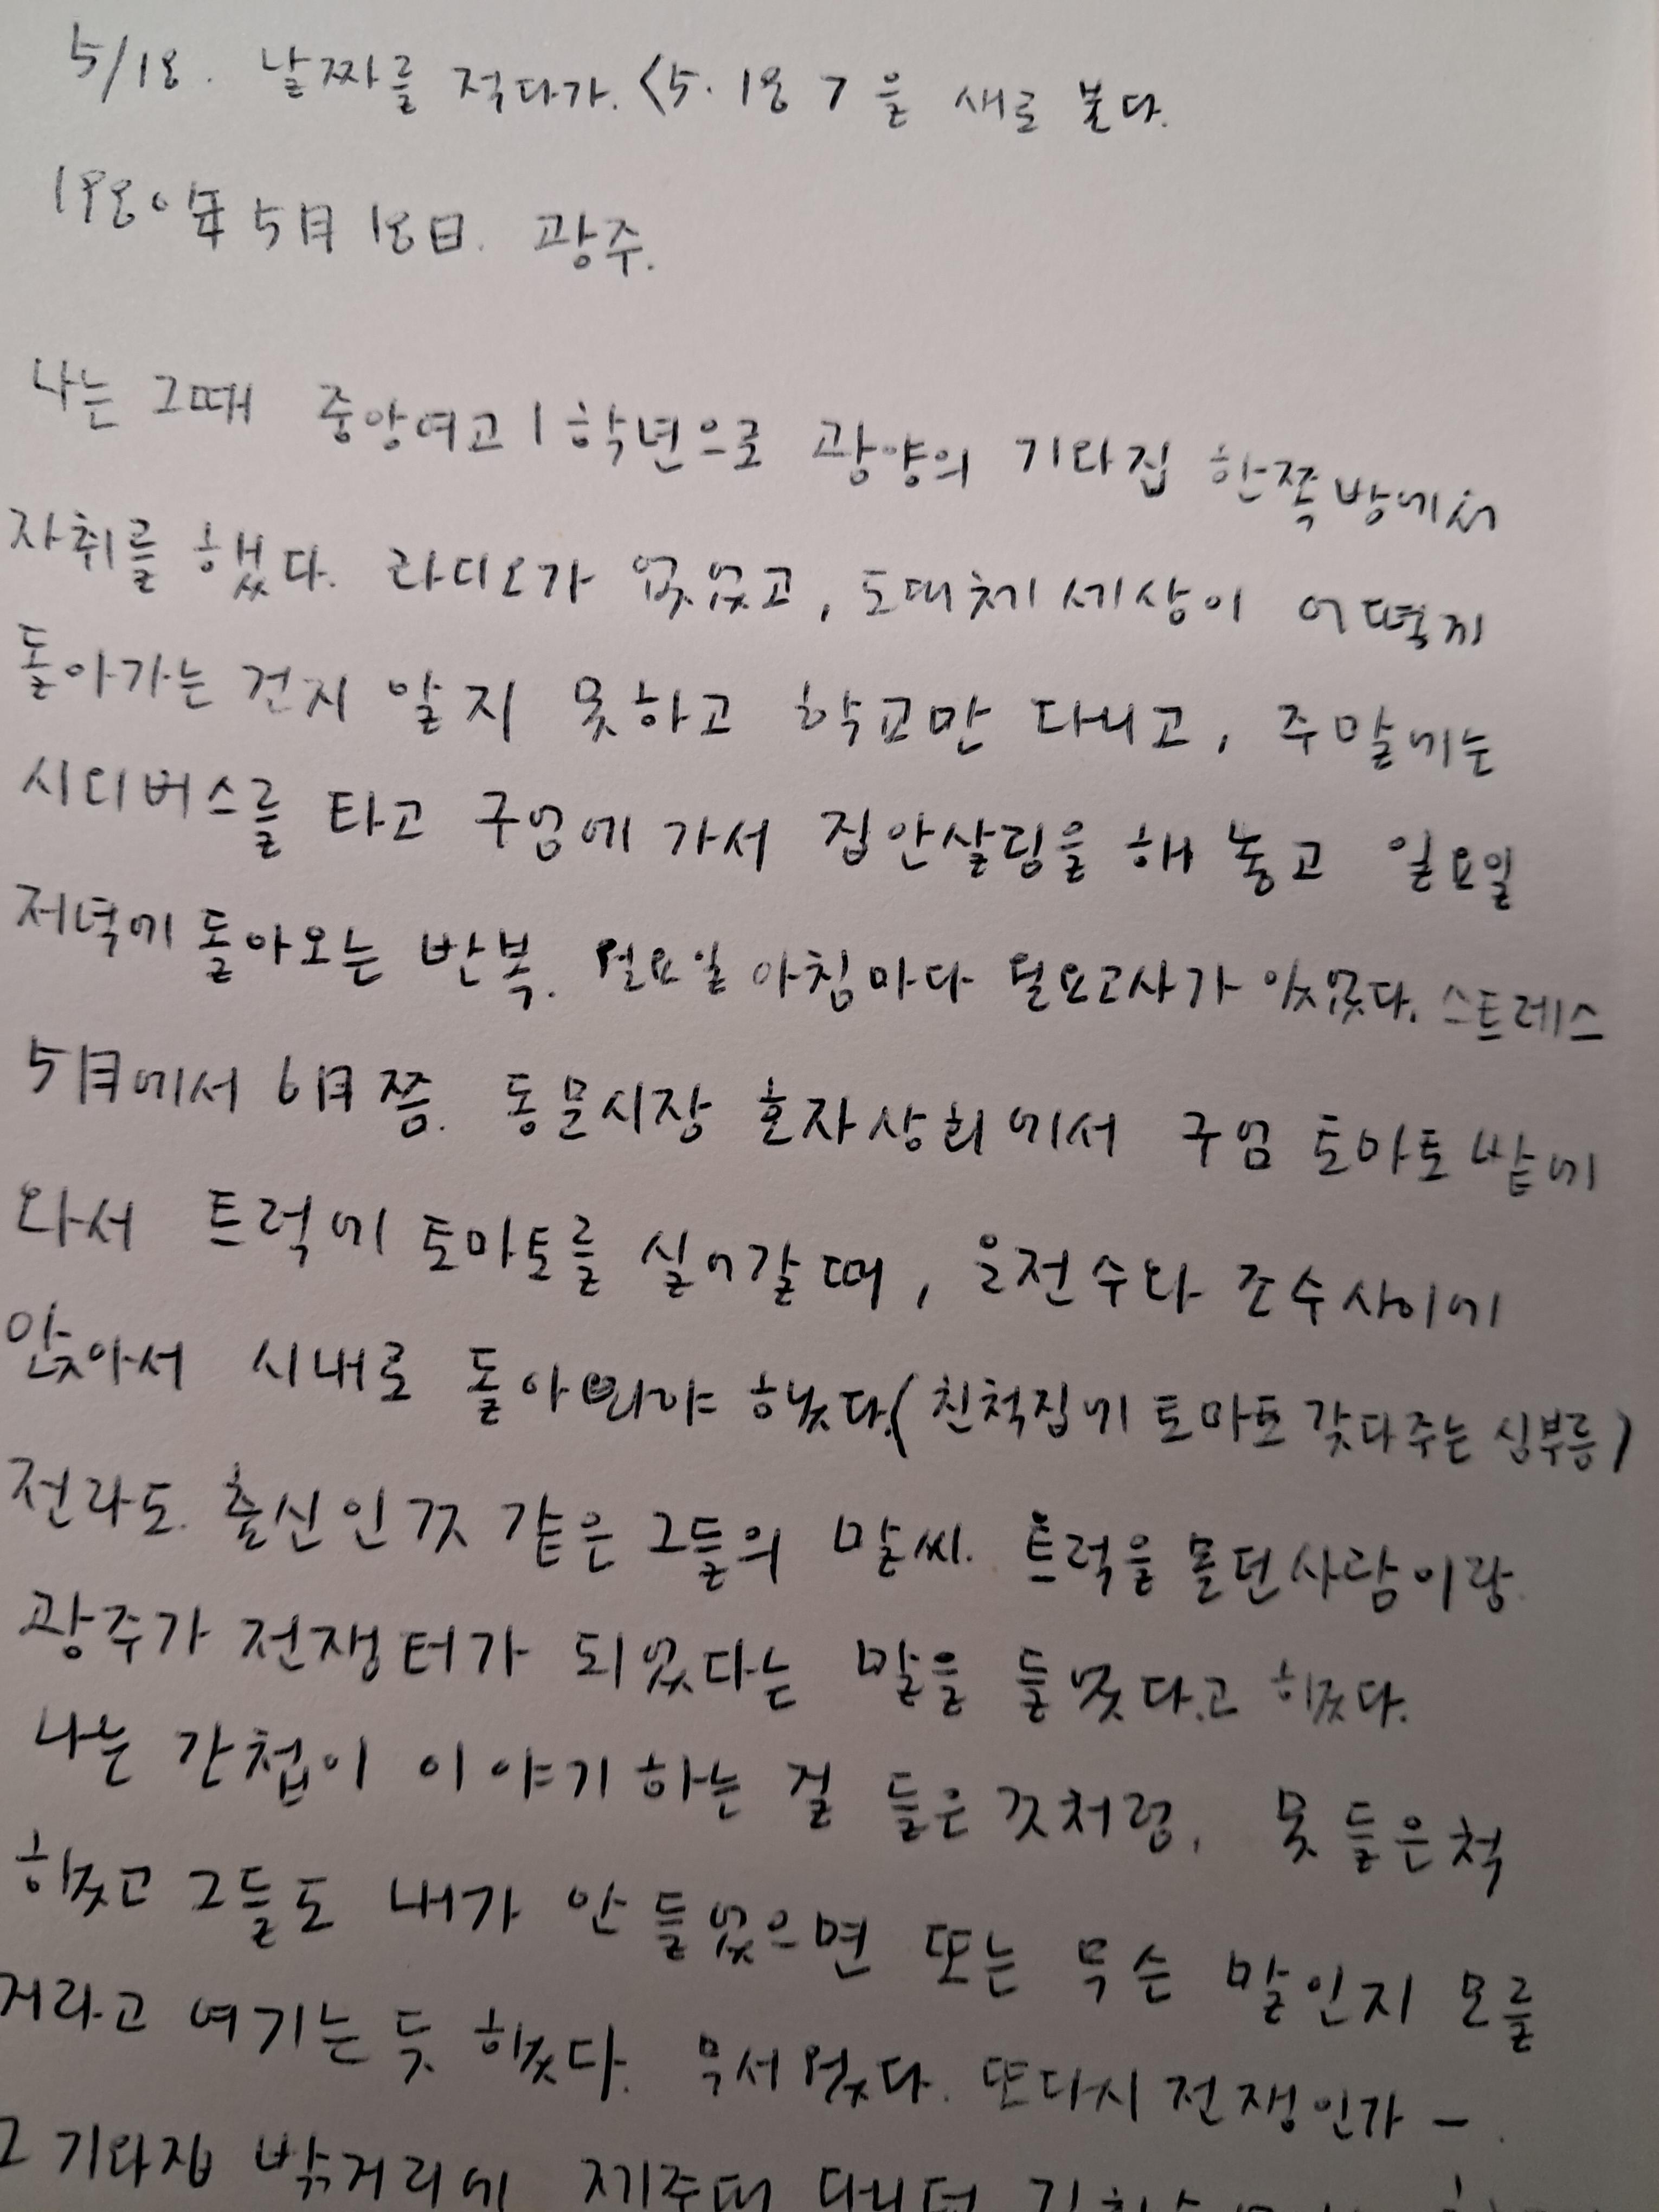 5/18. 날짜를 적다가. <5.18>을 새로 본다.
1980年 5月 18日. 광주.
나는 그때 중앙여고 1학년으로 광양의 기와집 한쪽방에서
자취를 했다. 라디오가 없었고, 도대체 세상이 어떻게
돌아가는 건지 알지 못하고 학교만 다니고, 주말에는
시외버스를 타고 구엄에 가서 집안살림을 해 놓고 일요일
저녁에 돌아오는 반복. 월요일 아침마다 월요고사가 있었다. 스트레스
5月에서 6月쯤. 동문시장 호자상회에서 구엄 토마토 밭에
와서 트럭에 토마토를 실어갈 때, 운전수와 조수사이에
앉아서 시내로 돌아와야 했다.(친척집에 토마토 갖다주는 심부름)
전라도. 출신인 것 같은 그들의 말씨. 트럭을 몰던 사람이랑
광주가 전쟁터가 되었다는 말을 들었다.고 했다.
나는 간첩이 이야기하는 걸 들은 것처럼, 못 들은척
했고 그들도 내가 안 들었으면 또는 무슨 말인지 모를
거라고 여기는 듯 했다. 무서웠다. 또다시 전쟁인가 -.
그 기와집 밖거리에 제주대 다니던